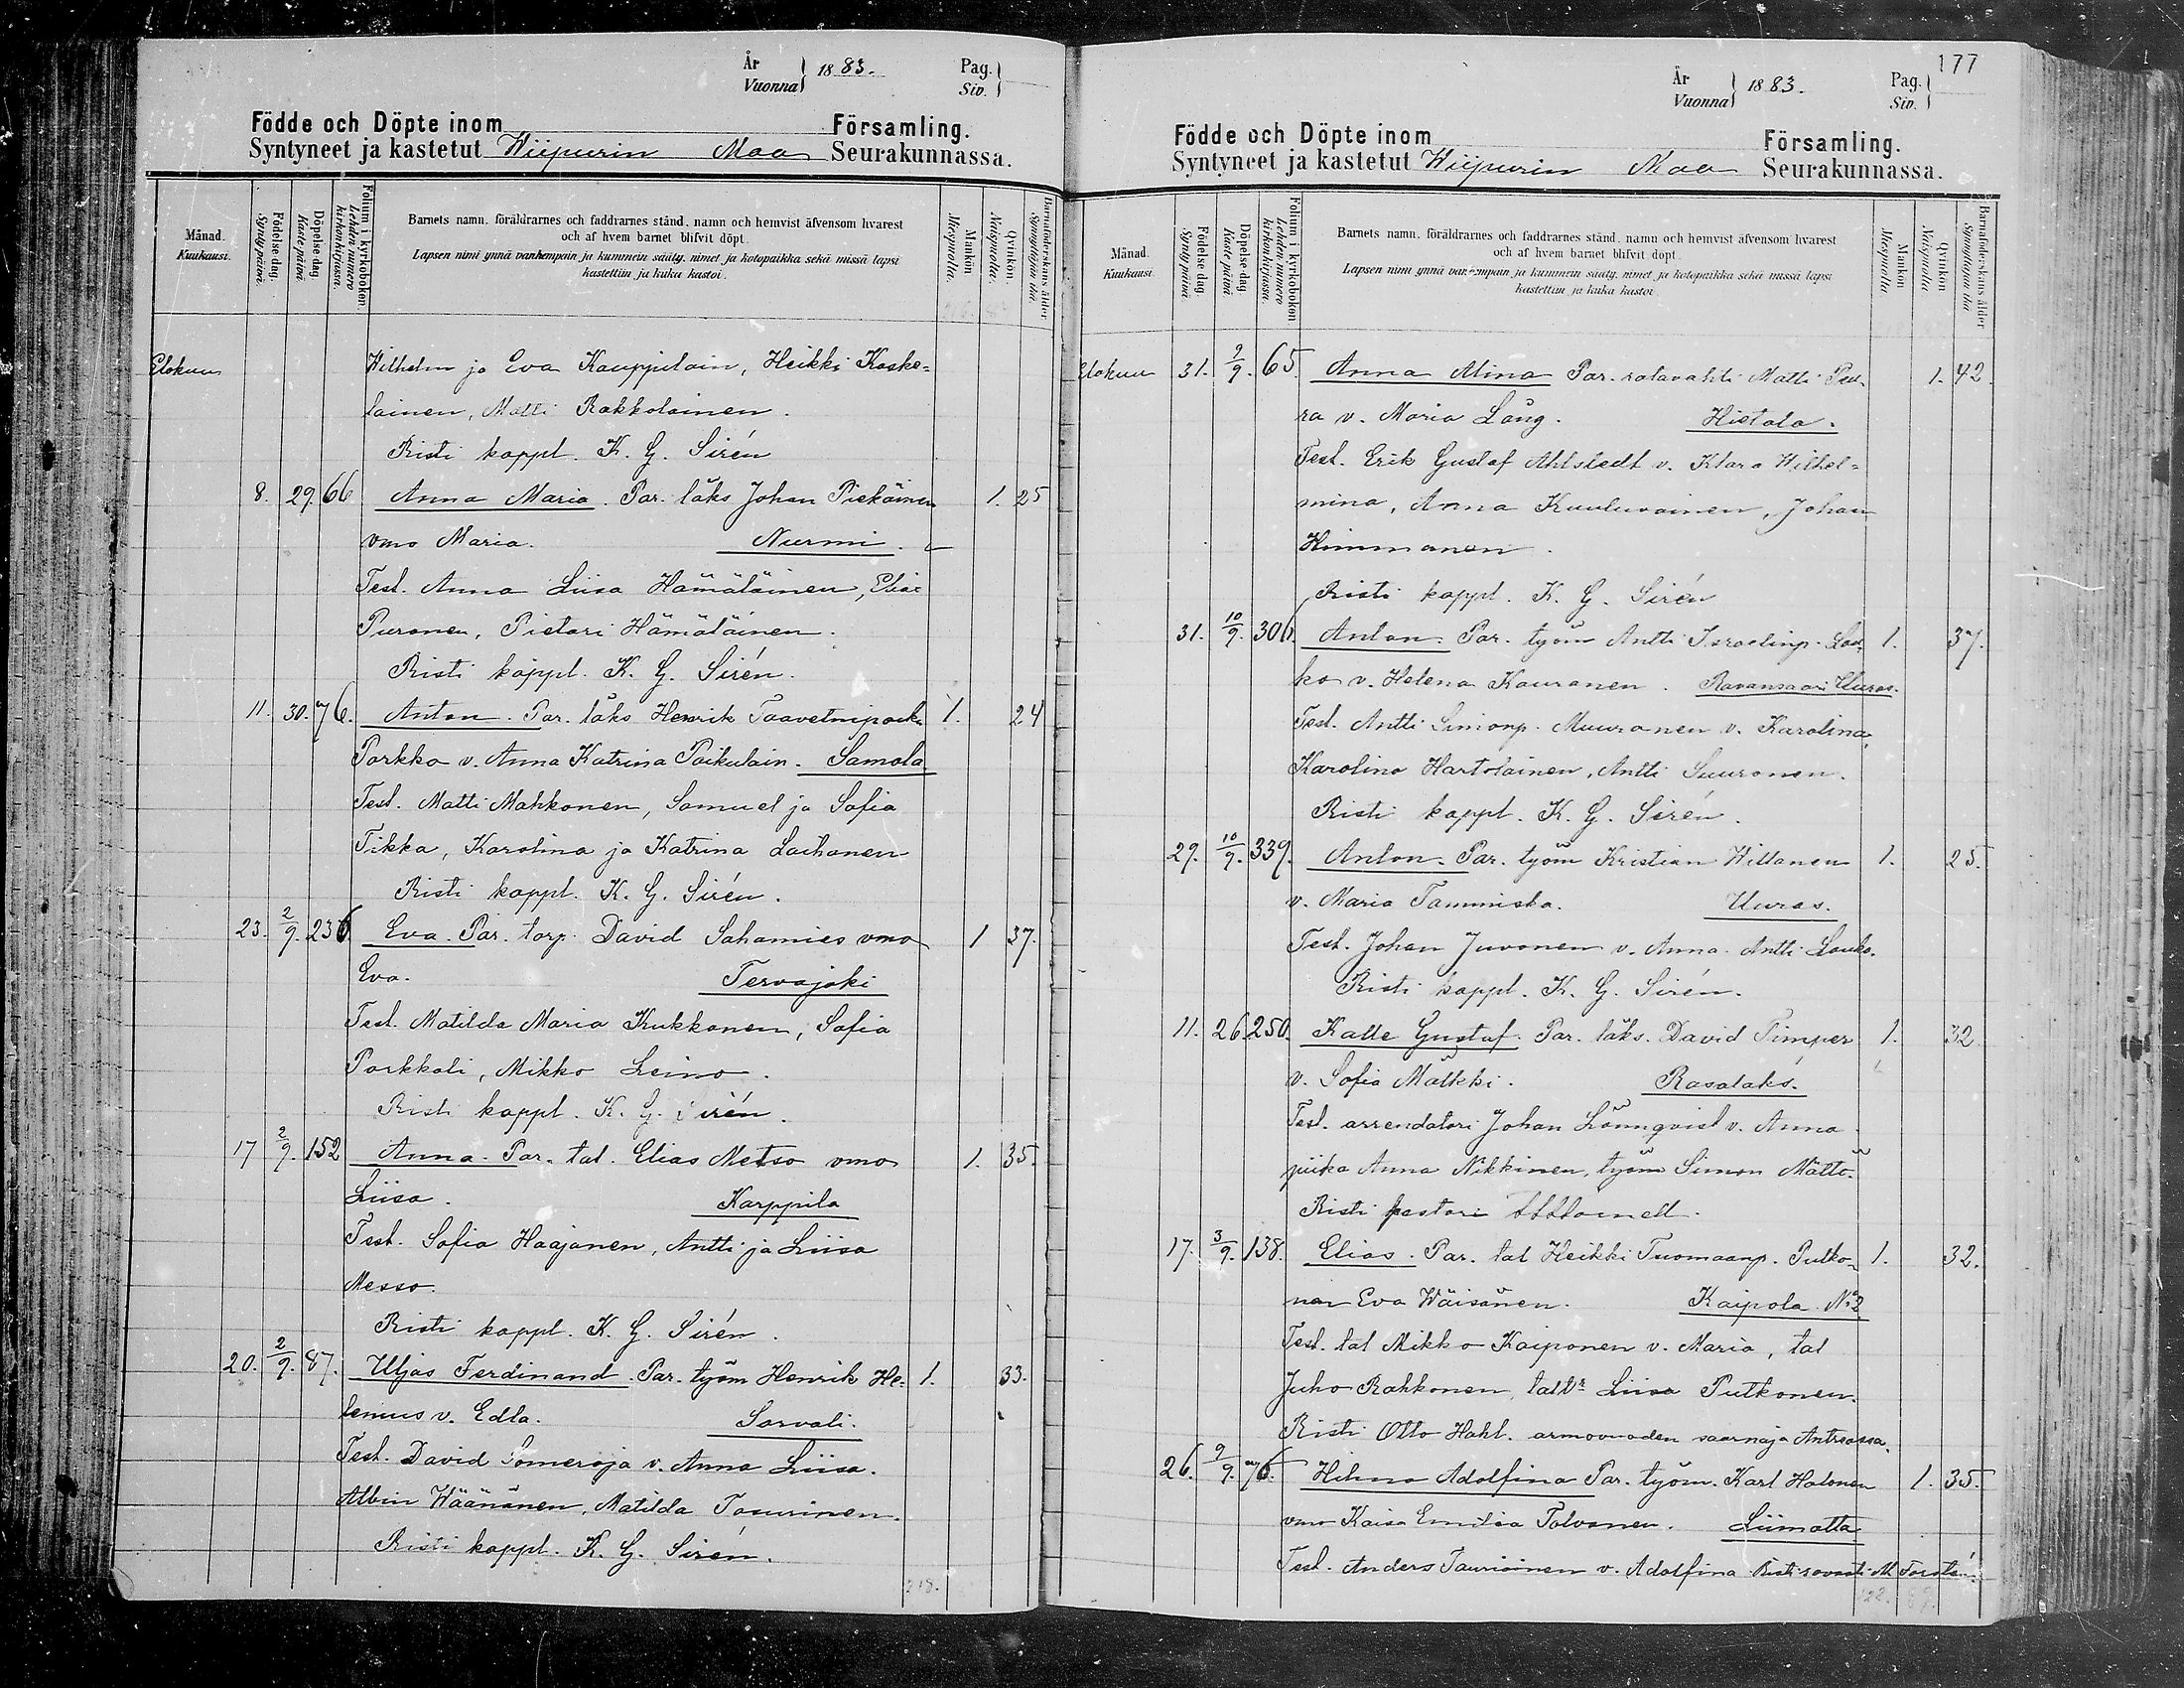 År
Vuonna
1883.
Pag.
Siv.
Födde och Döpte inom Församling.
Syntyneet ja kastetut Wiipurin Maa Seurakunnassa.
Månad.
Kuukausi.
Födelse dag.
Syntypäivä.
Döpelse dag
Kaste päivä.
Folium i kyrkoboken.
Lehden numero
kirkonkirjassa.
Barnets namn, föräldrarnes och faddrarnes stånd, namn och hemvist äfvensom hvarest
och af hvem barnet blifvit döpt.
Lapsen nimi ynnä vanhempain ja kummein sääty, nimet ja kotopaikka sekä missä lapsi
kastettiin ja kuka kastoi.
Mankön
Miespuolia.
Qvinkön.
Naispuolia.
Barnaföderskans ålder
Synnyttäjän ikä
Elokuu
Wilhelm ja Eva Kauppilain, Heikki Koske-
lainen, Matti Rakkolainen.
Risti kappl. K. G. Sirén
8. 29. 66 Anna Maria. Par. läks Johan Piekäinen 1. 25
vmo Maria. Nurmi.
Test. Anna Liisa Hämäläinen, Elias
Puronen, Pietari Hämäläinen.
Risti kappl. K. G. Sirén.
11. 30. 76. Anton. Par. läks Henrik Taavetinpoik. 1. 24
Porkka v. Anna Katrina Paikulain. Samola
Test. Matti Mahkonen, Samuel ja Sofia
Tikka, Karolina ja Katrina Laihanen
Risti kappl. K. G. Sirén.
23. 2/9. 236 Eva. Par. torp. David Sahamies vmo 1 37.
Eva. Tervajoki
Test. Matilda Maria Kukkonen, Sofia
Porkkali, Mikko Leino.
Risti kappl. K. G. Sirén.
17 2/9. 152 Anna. Par. tal. Elias Metso vmo 1. 35.
Liisa. Karppila
Test. Sofia Haajanen, Antti ja Liisa
Messo.
Risti kappl. K. G. Sirén.
20. 2/9. 87. Uljas Ferdinand. Par. työm Henrik He- 1. 33.
lenius v. Edla. Sorvali.
Test. David Someroja v. Anna Liisa.
Albin Wäänänen, Matilda Tasurinen.
Risti kappl. K. G. Sirén.
218.
177
År
Vuonna
1883.
Pag.
Siv.
Födde och Döpte inom Församling.
Syntyneet ja kastetut Wiipurin Maa Seurakunnassa.
Månad.
Kuukausi.
Födelse dag.
Syntypäivä.
Döpelse dag
Kaste päivä.
Folium i kyrkoboken
Lehden numero
kirkonkirjassa.
Barnets namn, föräldrarnes och faddrarnes stånd, namn och hemvist äfvensom hvarest
och af hvem barnet blifvit döpt.
Lapsen nimi ynnä vanhempain ja kummein sääty, nimet ja kotopaikka sekä missä lapsi
kastettiin ja kuka kastoi.
Mankön
Miespuolia
Qvinkön
Naispuolia
Barnaföderskans ålder
Synnyttäjän ikä
Elokuu 31. 9/9. 65. Anna Alina Par. ratavahti Matti Peu- 1. 42.
ra v. Maria Lång. Hietala.
Test. Erik Gustaf Ahlstedt v. Klara Wilhel-
mina, Anna Kuuluvainen, Johan
Himmanen.
Risti kappl. K. G. Sirén
31. 10/9. 306. Anton. Par. työm Antti Israelinp. Lau- 1. 37.
ko v. Helena Kauranen. Ravansaari Uuras.
Test. Antti Simonp. Muuronen v. Karolina,
Karolina Hartolainen, Antti Suuronen.
Risti kappl. K. G. Sirén.
29. 10/9. 339. Anton. Par. työm Kristian Willanen 1. 25.
v. Maria Tammiska. Uuras.
Test. Johan Juvonen v. Anna. Antti Lauko.
Risti kappl. K. G. Sirén.
11. 26. 250. Kalle Gustaf. Par. läks. David Pimper 1. 32
v. Sofia Matkki. Rasalaks.
Test. arrendatori Johan Lönnqvist v. Anna
piika Anna Nikkinen, työm Simon Mättö.
Risti pastori
17. 3/9. 138. Elias. Par. tal Heikki Tuomaanp. Putko- 1. 32.
nen Eva Wäisänen. Kaipola No 2
Test. tal Mikko Kaiponen v. Maria, tal
Juho Rahkonen, taltr Liisa Putkonen.
Risti Otto Hahl. armovuoden saarnaja Antreassa.
26. 9/9. 76. Hilma Adolfina Par. työm. Karl Halonen 1. 35.
vmo Kaisa Emilia Tolvanen. Liimatta
Test. Anders Tauriainen v. Adolfina Risti rovasti M. Forstén.